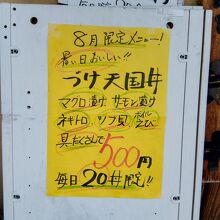 8月限定メニュー!
暑い日おいしい!!
づけ天国丼
マグロ漬け サーモン漬け
ネギトロ、ツブ貝、ボイルエビ
具だくさんで
500円
毎日20丼限定!!